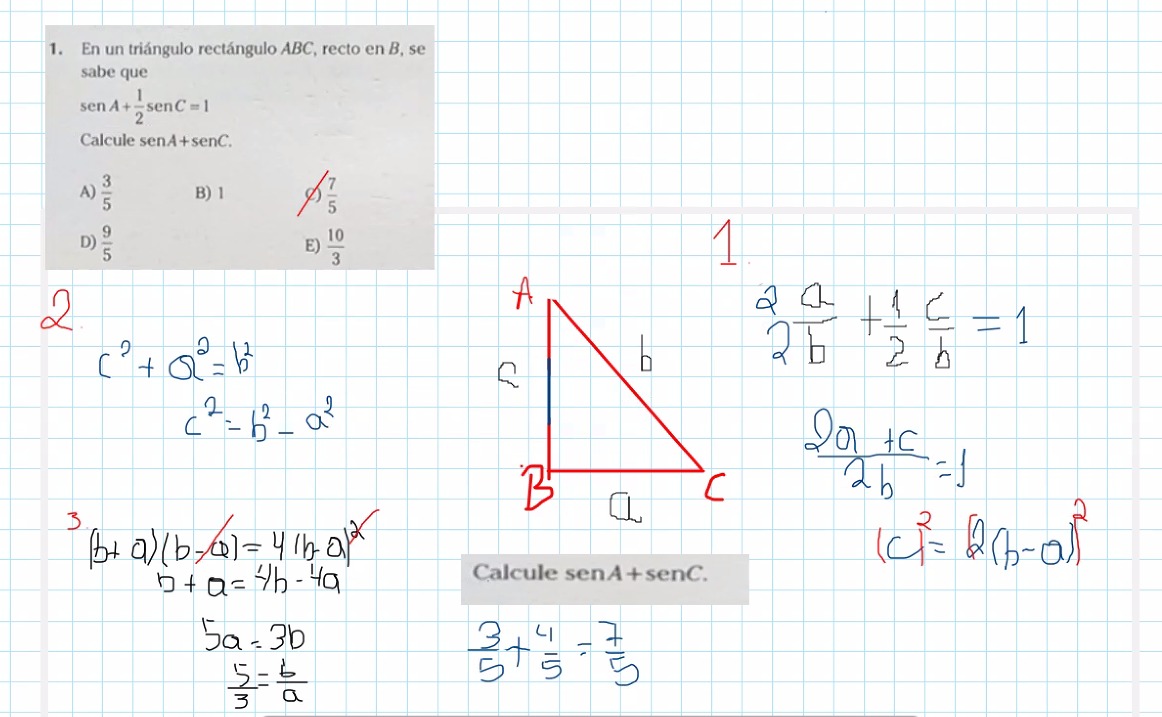 1. En un triángulo rectángulo ABC, recto en B, se
sabe que
sen A + 1/2 sen C = 1
Calcule sen A + sen C.
A) 3/5 B) 1 C) 7/5
D) 9/5 E) 10/3
1.
2/2 a/b + 1/2 c/b = 1
(2a + c)/2b = 1
(c)² = [2(b-a)]²
A
c
b
B
a
C
2.
c² + a² = b²
c² = b² - a²
3.
(b+a)(b-a) = 4(b-a)²
b + a = 4b - 4a
5a = 3b
5/3 = b/a
Calcule sen A + sen C.
3/5 + 4/5 = 7/5